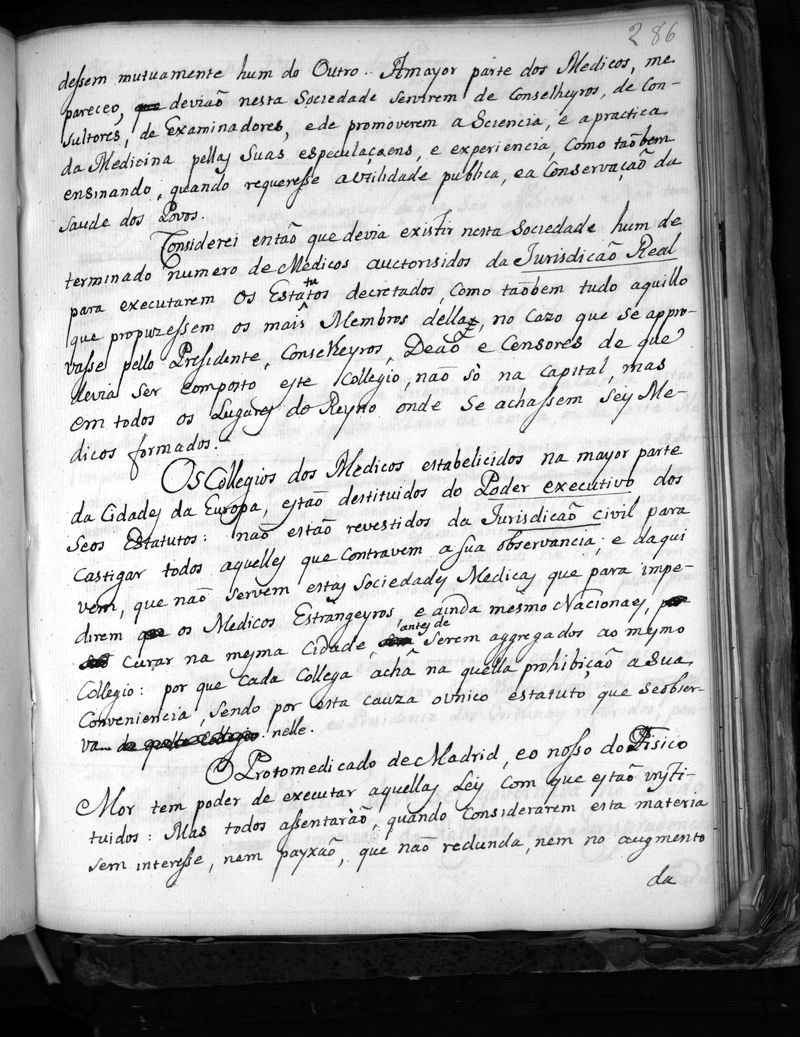 286
dessem mutuamente hum do Outro. A mayor parte dos Medicos, me
pareceo, deviaõ nesta Sociedade servirem de Conselheyros, de Con-
sultores, de Examinadores, e de promoverem a Sciencia, e a practica
da Medicina pellas Suas especulaçaens, e experiencia, Como taõbem
ensinando, quando requeresse a Utilidade publica, e a Conservaçaõ da
saude dos Povos.
Considerei entaõ que devia existir nesta Sociedade hum de
terminado numero de Medicos auctorisidos da Jurisdicaõ Real
para executarem os Estatutos decretados, Como taõbem tudo aquillo
que propuzessem os mais Membros della, no Cazo que se appro-
vasse pello Presidente, Conselheyros, Deaõ e Censores de que
devia ser composto este Collegio, naõ sò na Capital, mas
em todos os Lugares do Reyno onde se achassem seis Me-
dicos formados.
Os Collegios dos Medicos estabelicidos na mayor parte
da Cidades da Europa, estaõ destituidos do Poder executivo dos
Seos Estatutos: naõ estaõ revestidos da Jurisdicaõ civil para
Castigar todos aquelles que contravem a sua observancia; e daqui
vem, que naõ servem estas Sociedades Medicas que para impe-
direm os Medicos Estrangeyros, e ainda mesmo Nacionaes,
Curar na mesma Cidade, antes de serem aggregados ao mesmo
Collegio: por que cada Collega achà na quella prohibiçaõ a Sua
Conveniencia, sendo por esta cauza o unico estatuto que se obser-
va nelle.
O Protomedicado de Madrid, e o nosso do Fisico
Mor tem poder de executar aquellas Leis Com que estaõ insti-
tuidos: Mas todos assentaràõ, quando Considerarem esta materia
sem interesse, nem payxaõ, que naõ redunda, nem no augmento
da